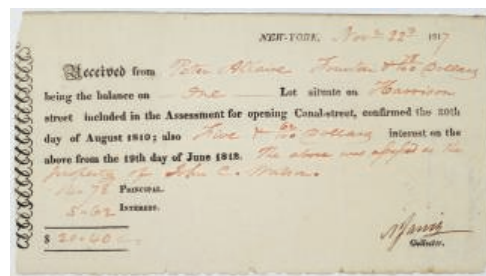 NEW-YORK, Novr 22d 1817
Received from Peter
being the balance on One Lot situate on Harrison
street included in the Assessment for opening Canal-street, confirmed the 20th
day of August 1810; also Five & Dollars interest on the
above from the 19th day of June 1812. The above was assessed as the
property of John C.
78 PRINCIPAL.
5.62 INTEREST.
$ 20.40
Collector.